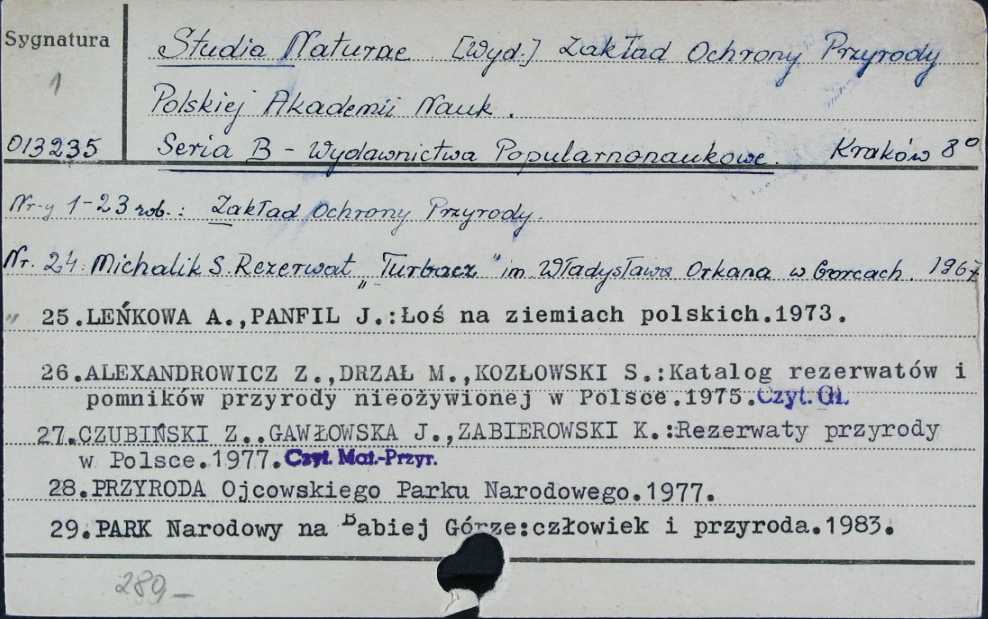 Sygnatura
1
013235
Studia Naturae [Wyd.] Zakład Ochrony Przyrody
Polskiej Akademii Nauk.
Seria B - Wydawnictwa Popularnonaukowe. Kraków 8°
Nr-y 1-23 zob.: Zakład Ochrony Przyrody.
Nr. 24: Michalik S. Rezerwat "Turbacz" im. Władysława Orkana w Gorcach. 1967
" 25.LEŃKOWA A.,PANFIL J.:Łoś na ziemiach polskich.1973.
26.ALEXANDROWICZ Z.,DRZAŁ M.,KOZŁOWSKI S.:Katalog rezerwatów i
pomników przyrody nieożywionej w Polsce.1975. Czyt. Gł.
27.CZUBIŃSKI Z..GAWŁOWSKA J.,ZABIEROWSKI K.:Rezerwaty przyrody
w Polsce.1977. Czyt. Mat.-Przyr.
28.PRZYRODA Ojcowskiego Parku Narodowego.1977.
29.PARK Narodowy na Babiej Górze:człowiek i przyroda.1983.
289-